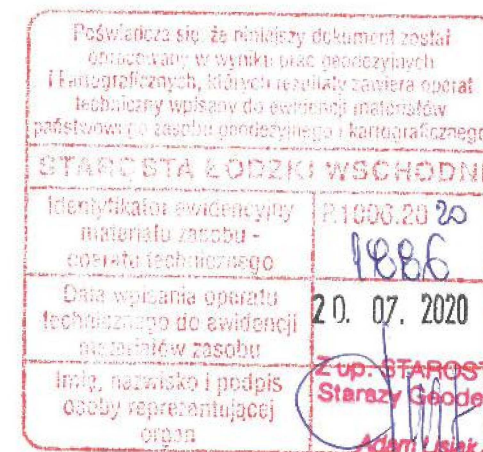 Poświadcza się, że niniejszy dokument został
opracowany w wyniku prac geodezyjnych
i kartograficznych, których rezultaty zawiera operat
techniczny wpisany do ewidencji materiałów
państwowego zasobu geodezyjnego i kartograficznego
STAROSTA ŁÓDZKI WSCHODNI
Identyfikator ewidencyjny
materiału zasobu -
operatu technicznego
P.1006.20 20
1886
Data wpisania operatu
technicznego do ewidencji
materiałów zasobu
20. 07. 2020
Imię, nazwisko i podpis
osoby reprezentującej
organ
Z up. STAROST
Starszy Geode
Adam Lisiak